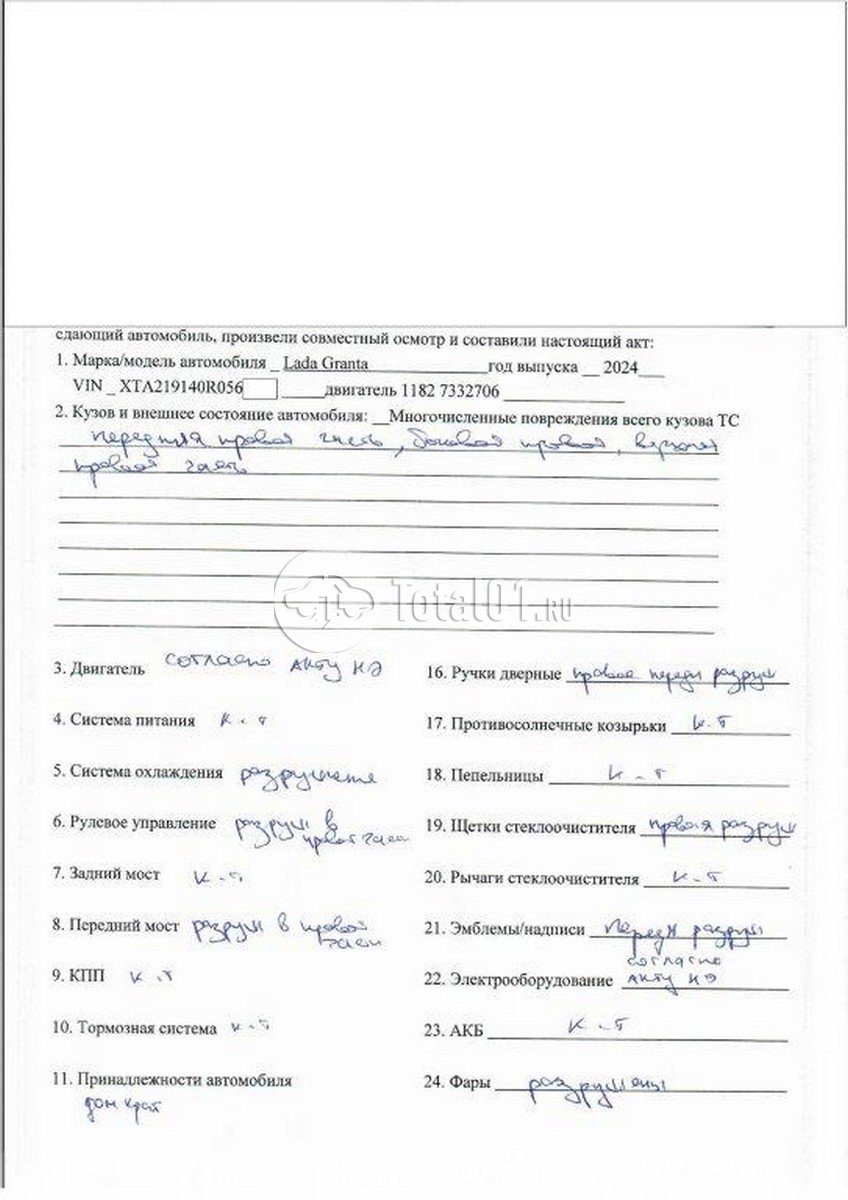 сдающий автомобиль, произвели совместный осмотр и составили настоящий акт:
1. Марка/модель автомобиля _ Lada Granta год выпуска __ 2024___
VIN _ XTA219140R056 двигатель 1182 7332706
2. Кузов и внешнее состояние автомобиля: __Многочисленные повреждения всего кузова ТС
передняя правая часть, боковая правая,
правая часть
Total01.RU
3. Двигатель согласно акту НЭ
4. Система питания к-т
5. Система охлаждения разрушена
6. Рулевое управление разруш в правой части
7. Задний мост к-т
8. Передний мост разруш в правой части
9. КПП к-т
10. Тормозная система к-т
11. Принадлежности автомобиля
домкрат
16. Ручки дверные правая передн разруш
17. Противосолнечные козырьки к-т
18. Пепельницы к-т
19. Щетки стеклоочистителя правая разруш
20. Рычаги стеклоочистителя к-т
21. Эмблемы/надписи передн разруш
22. Электрооборудование согласно акту НЭ
23. АКБ к-т
24. Фары разрушены